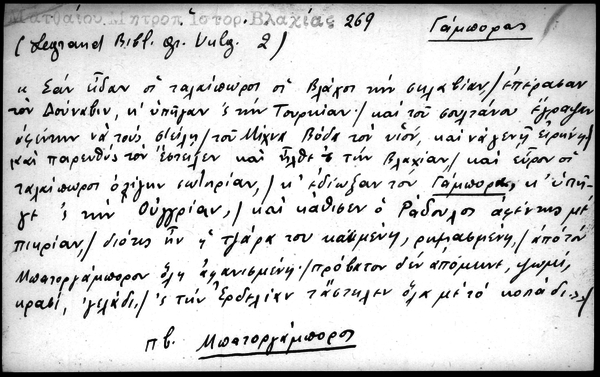 Ματθαίου Μητροπ. Ἱστορ. Βλαχίας 269 Γάμπορας
(Legrand Bibl. gr. Vulg. 2)
κ Σὰν εἶδαν οἱ ταλαίπωροι οἱ Βλάχοι τὴν σκλαβίαν,/ ἐπέρασαν
τὸν Δούναβιν, κ' ὑπῆγαν 'ς τὴν Τουρκίαν·/ καὶ τοῦ σουλτάνου ἔγραψαν
ἀφέντην νὰ τοὺς στείλῃ/ τοῦ Μίχνα Βόδα τὸν υἱόν, καὶ νὰ γενῇ εἰρήνη·/
καὶ παρευθὺς τὸν ἔστειλεν καὶ ἦλθε 'ς τὴν Βλαχίαν,/ καὶ εὗρον οἱ
ταλαίπωροι ὀλίγην σωτηρίαν,/ κ' ἐδίωξαν τὸν Γάμπορα, κ' ὑπῆ-
γε 'ς τὴν Οὐγγρίαν,/ καὶ κάθισεν ὁ Ράδουλος ἀφέντης μὲ
πικρίαν,/ διότις ἦν ἡ τζάρα του καϋμένη, ρημασμένη,/ ἀπὸ τὸν
Μπατοργάμπορον ὅλη ἀφανισμένη·/ πρόβατον δὲν ἀπόμεινε, ψωμί,
κρασί, 'γελάδι,/ 'ς τὴν Ἐρδελίαν τἄστειλεν ὅλα μὲ τὸ κοπάδι.»/
πβ. Μπατοργάμπορος